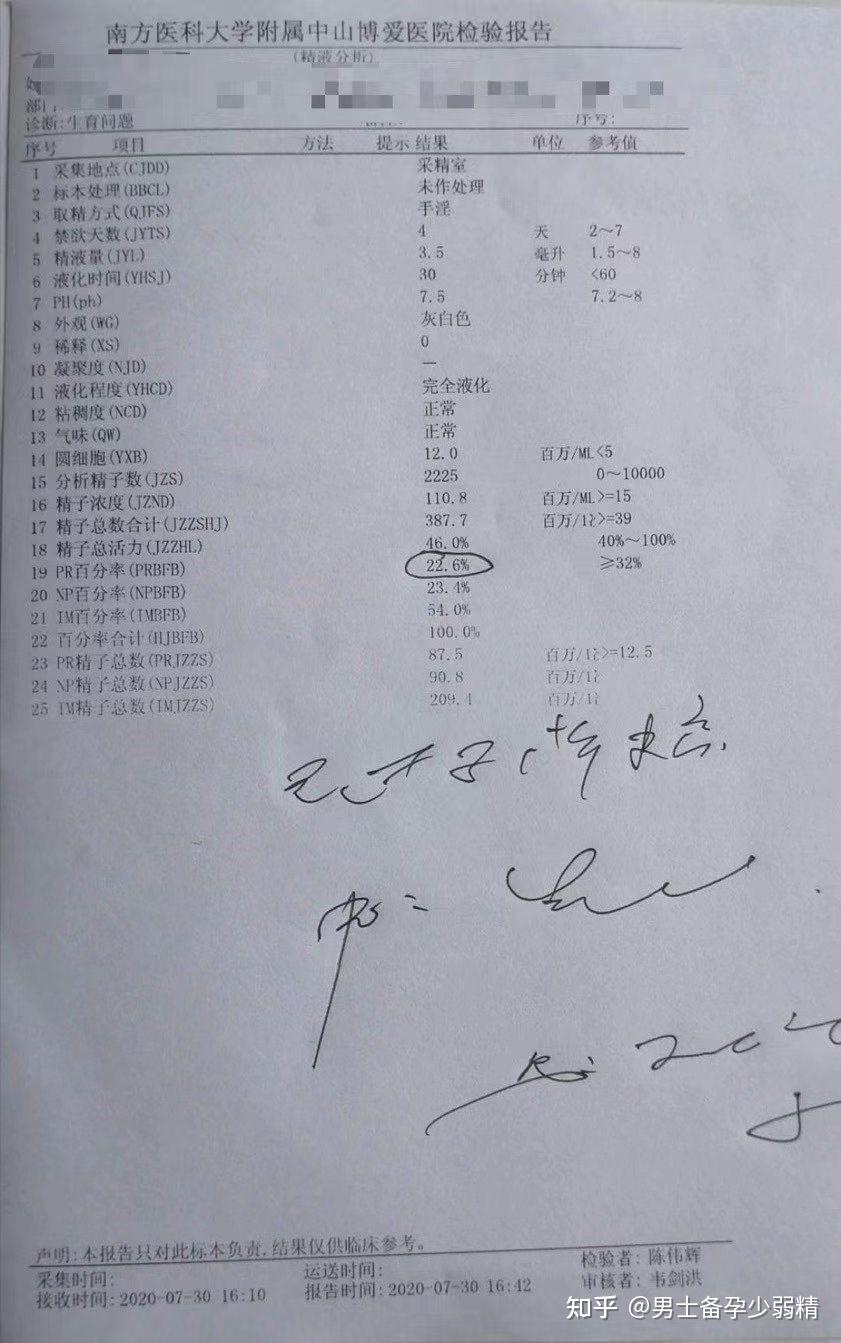 南方医科大学附属中山博爱医院检验报告
(精液分析)
诊断:生育问题 序号:
序号 项目 方法 提示 结果 单位 参考值
1 采集地点(CJDD) 采精室
2 标本处理(BBCL) 未作处理
3 取精方式(QJFS) 手淫
4 禁欲天数(JYTS) 4 天 2~7
5 精液量(JYL) 3.5 毫升 1.5~8
6 液化时间(YHSJ) 30 分钟 <60
7 PH(ph) 7.5 7.2~8
8 外观(WG) 灰白色
9 稀释(XS) 0
10 凝聚度(NJD) —
11 液化程度(YHCD) 完全液化
12 粘稠度(NCD) 正常
13 气味(QW) 正常
14 圆细胞(YXB) 12.0 百万/ML <5
15 分析精子数(JZS) 2225 0~10000
16 精子浓度(JZND) 110.8 百万/ML >=15
17 精子总数合计(JZZSHJ) 387.7 百万/1 >=39
18 精子总活力(JZZHL) 46.0% 40%~100%
19 PR百分率(PRBFB) 22.6% ≥32%
20 NP百分率(NPBFB) 23.4%
21 IM百分率(IMBFB) 54.0%
22 百分率合计(HJBFB) 100.0%
23 PR精子总数(PRJZZS) 87.5 百万/1 >=12.5
24 NP精子总数(NPJZZS) 90.8 百万/1
25 IM精子总数(IMJZZS) 209.4 百万/1
声明:本报告只对此标本负责,结果仅供临床参考。
采集时间: 运送时间: 检验者: 陈伟辉
接收时间: 2020-07-30 16:10 报告时间: 2020-07-30 16:42 审核者: 韦剑洪
知乎 @男士备孕少弱精